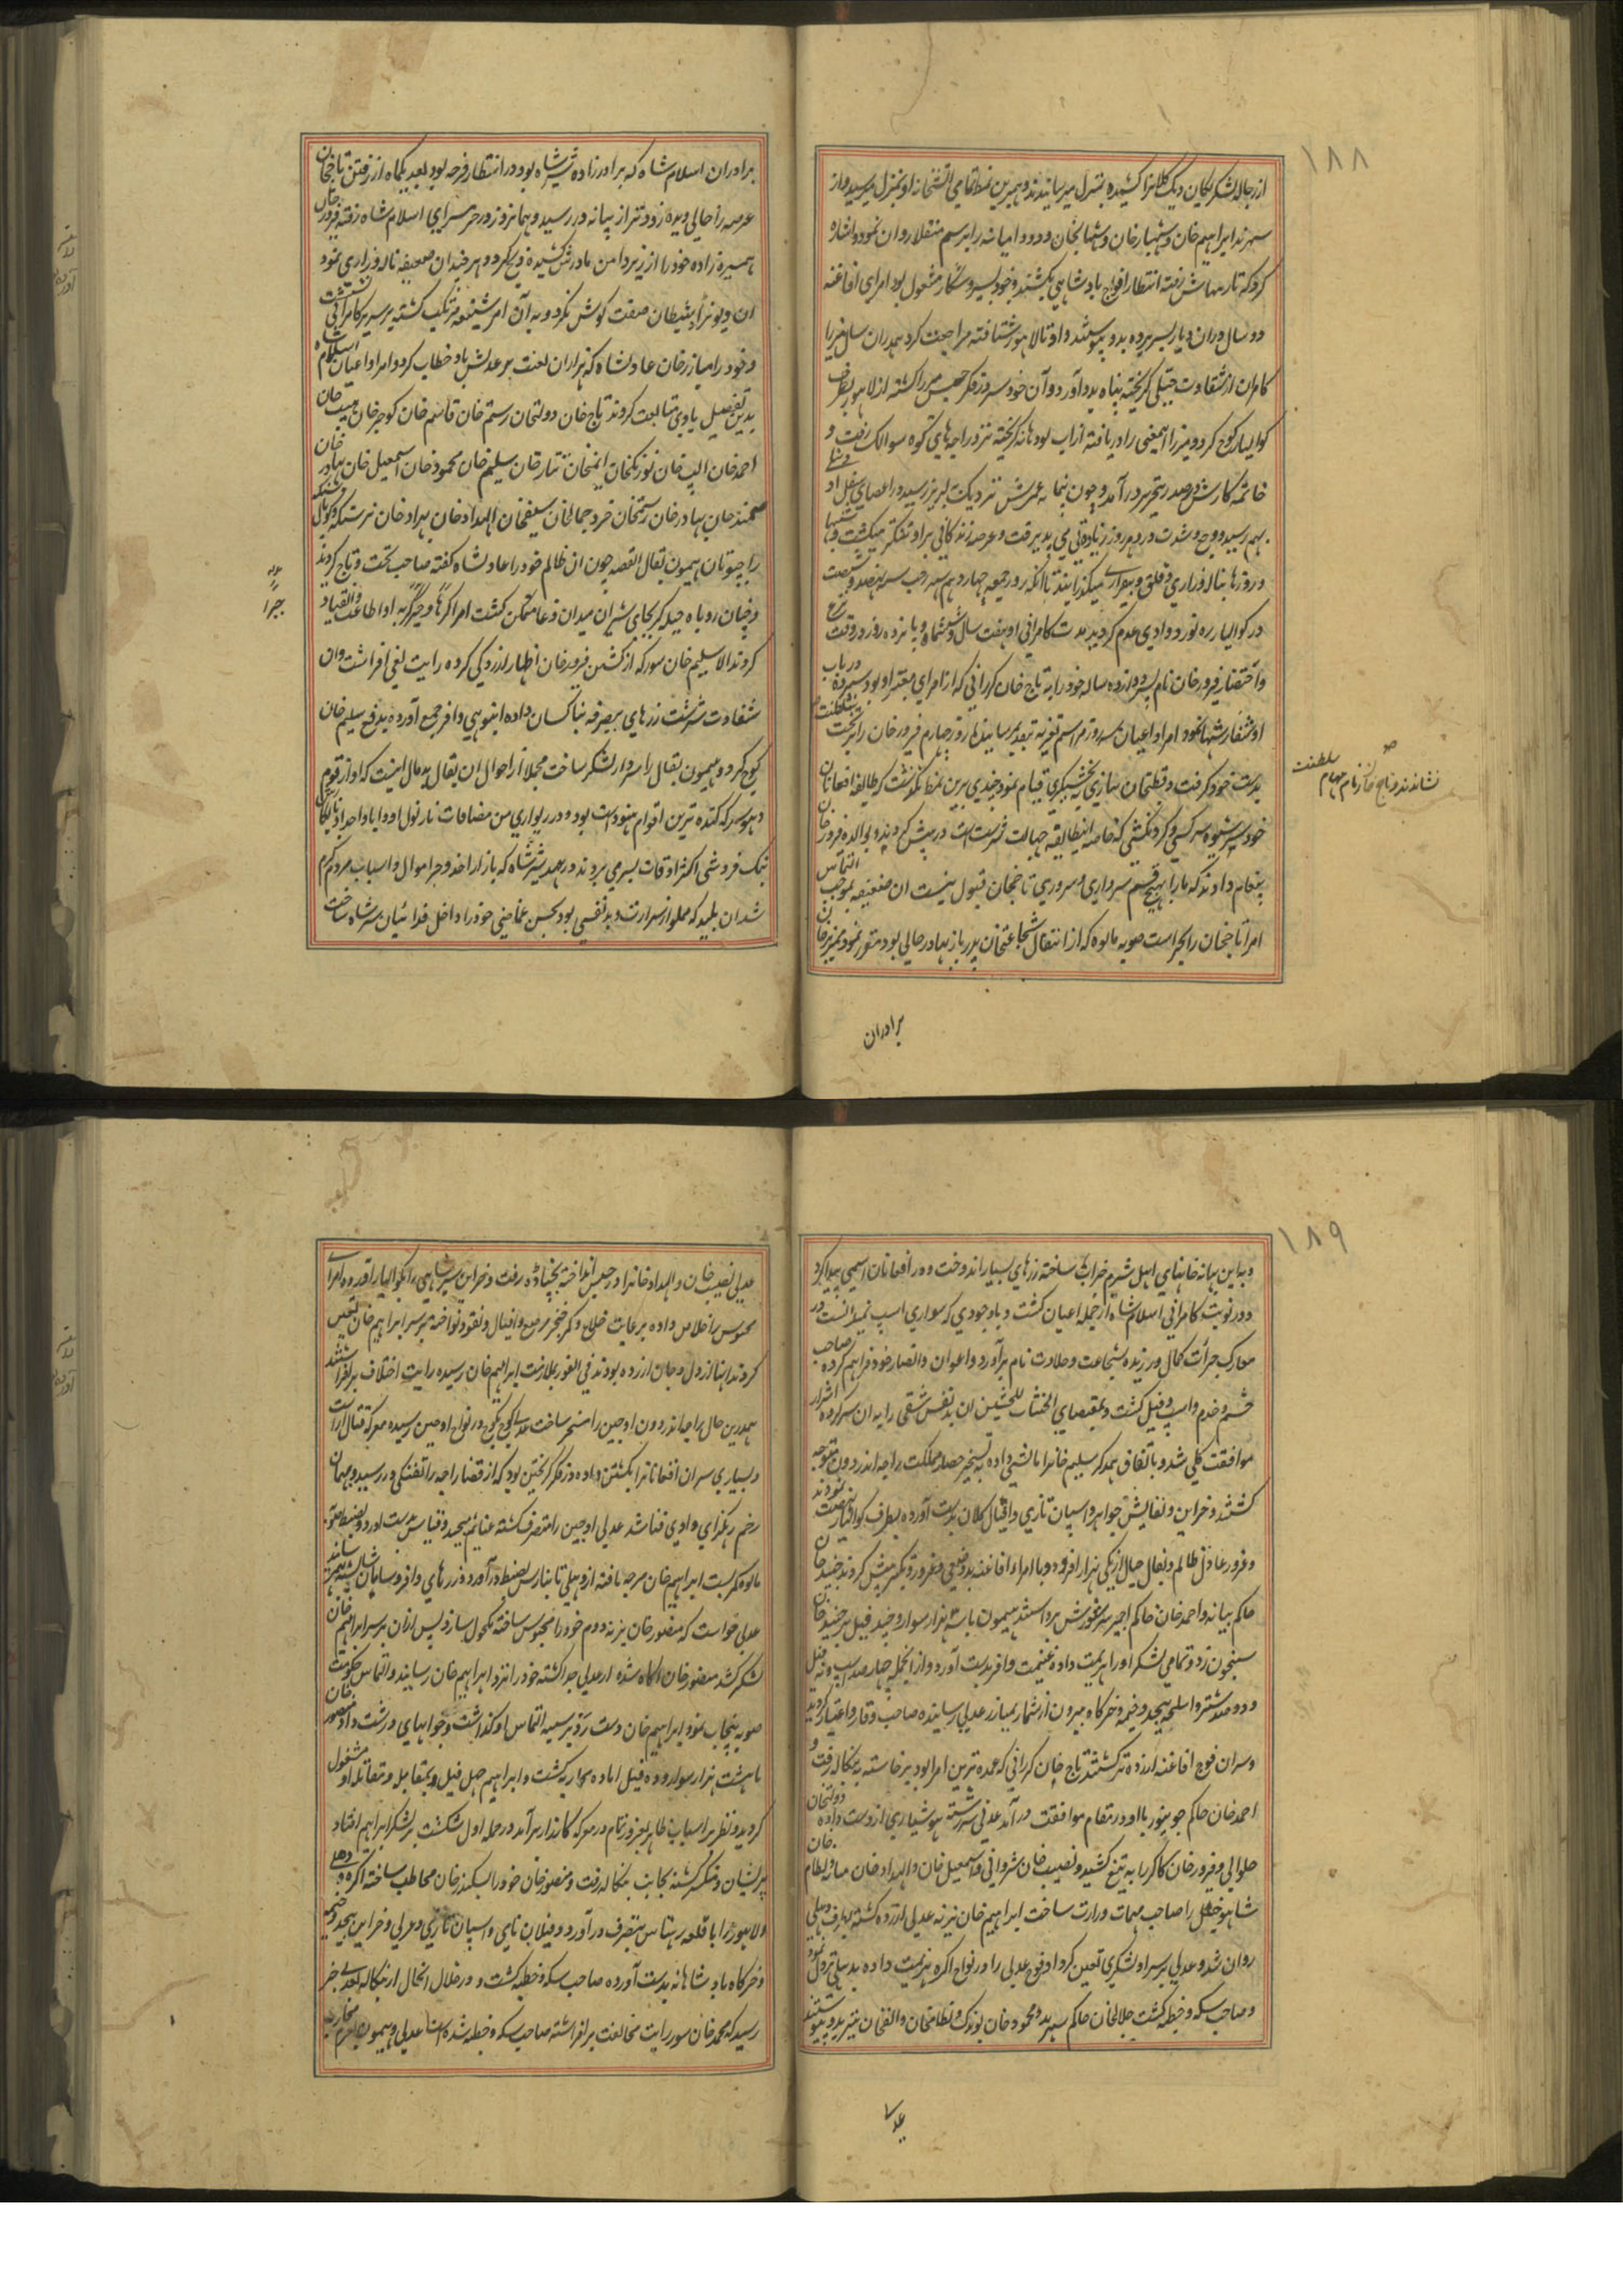 ١٨٨
از رجاله لشکر کمان دیک کلانرا کشیده بمنزل میرسانیدند و بهمین نمط تمامی اتشخانه او بمنزل میرسید و از
سهرند ابراهیم خان و شهباز خان و شهابخان و دودا میانه را برسم منقلا روان نمود و اشاره
کرد که تا رهتاس رفته انتظار افواج بادشاهی بکشند و خود بسیر و شکار مشغول بود امرای افاغنه
دو سال در ان دیار بسر برده بدو پیوستند و او تا لاهور شتافته مراجعت کرد همدران سال میرزا
کامران از شقاوت جبلی گریخته پناه بدو آورد و آن خود سر در فکر حبس میرزا گشته از لاهور بطرف
کوالیار کوچ کرد و میرزا اینمعنی را دریافته از اب لودهانه گریخته نزد راجه های کوه سوالک رفت و
خاتمه کارش در صدر تحریر در آمد و چون پیمانه عمرش نزدیک لبریز رسید در اعضای سفل او
بهم رسید و وجع و شدت درد هر روز زیادتی می پذیرفت و عرصه زندگانی بر او تنگتر میگشت و شبها
و روزها بناله و زاری و قلق و بیقراری میگذرانید تا انکه روز جمعه چهاردهم شهر رجب سنه نهصد و شصت
در کوالیار ره نورد وادی عدم گردید مدت کامرانی او هفت سال و شش ماه و پانزده روز در وقت
واختضار فیروز خان نام پسر دوازده ساله خود را به تاج خان کرانی که از امرای معتبر او بود سپرده در باب
او سفارشها نمود امرا و اعیان سه روز مراسم تعزیه بتقدیم رسانیدند روز چهارم فیروز خان را بتخت
نشاندند و تاج خان زمام مهام سلطنت
بدست خود گرفت و قطبخان نیازی بخشیگری قیام نمود چندی برین نمط نگذشت که طایفه افغانان
خود سر شیوه سرکشی و گردنکشی که خاصه اینطایفه جهالت سرشت است در پیش گرفته بوالده فیروز خان
پیغام دادند که ما را بهیچ قسم سرداری و سروری تاجخان قبول نیست ان ضعیفه بموجب التماس
امرا تاجخان را بحراست صوبه مالوه که از انتقال شجاعتخان پدر باز بهادر خالی بود دستور نمود مبارز خان
برادران
برادران اسلام شاه که برادر زاده شیر شاه بود در انتظار فرصه بود بعد یکماه از رفتن تاجخان
عرصه را خالی دیده زودتر از بیانه در رسید و همانروز در حرمسرای اسلام شاه رفته فیروز خان
همشیره زاده خود را از زیر دامن مادرش کشیده ذبح کرد و هر چند ان ضعیفه ناله و زاری نمود
ان دیو نژاد شیطان صفت گوش نکرد و به آن امر شنیعه مرتکب گشته بر سریر کامرانی نشست
و خود را مبارز خان عادلشاه که هزاران لعنت بر عدلش باد خطاب کرد و امرا و اعیان اسلام شاه
بدین تفصیل با وی متابعت کردند تاج خان دولتخان رستم خان قاسم خان کوجر خان هیبت خان
احمد خان الپ خان نورنکخان ایمنخان تتار خان سلیم خان محمود خان اسمعیل خان بهادر خان
بهادر خان رستمخان خرد جمالخان سیفخان الهداد خان بهزاد خان
راجپوتان هیمون بقال القصه چون ان ظالم خود را عادلشاه گفته صاحب تخت و تاج گردید
و چنان روباه حیله گر بجای شیران میدان وغا متمکن گشت امرا کرها و جبرا به او اطاعت و انقیاد
کردند الا سلیم خان سور که از کشتن فیروز خان اظهار ازردگی کرده رایت بغی افراشت وان
شقاوت سرشت زرهای بیصرفه بناکسان داده انبوهی وافر جمع آورده بدفع سلیم خان
کوچ کرد و هیمون بقال را سردار لشکر ساخت مجملا از احوال ان بقال بد مال اینست که او از قوم
دهوسر که کنده ترین اقوام هنود است بود و در ریواری من مضافات نارنول او و ابا و اجداد
نمک فروشی اکثر اوقات بسر می بردند در عهد شیر شاه که بازار اخذ و جر اموال و اسباب مردم گرم
شد ان پلید که مملو از شرارت و بد نفسی بود بحسن غمازی خود را داخل فدائیان شیر شاه ساخت
١٨٩
و به این بهانه خانهای اهل شرم خراب ساخته زرهای بسیار اندوخت و در افغانان اسمی پیدا کرد
و در نوبت کامرانی اسلام شاه از جمله اعیان گشت و با وجودی که سواری اسپ نمیدانست در
معارک جرات کمال ورزیده بشجاعت و جلادت نام برآورد و اعوان و انصار خود فراهم کرده صاحب
حشم و خدم و اسپ و فیل گشت و بمقتضای الخبیثات للخبیثین ان بد نفس شقی را به ان سرکرده اشرار
موافقت کلی شد و باتفاق همدگر سلیم خانرا مالشی داده به تسخیر حصار مملکت راجه اندردون متوجه
گشتند و خزاین و نفایس جواهر و اسپان تازی و افیال کلان بدست آورده بطرف کوالیار نهضت نمودند
و غرور عادل ظالم و بقال جیال از یکی هزار افزوده و با امراء افاغنه بدوضعی و غرور و تکبر پیش کردند جنید خان
حاکم بیانه و احمد خان حاکم اجمیر سر شورش برداشتند هیمون با سه هزار سوار و چند فیل بر جنید خان
شبخون زد و تمامی لشکر او را هزیمت داده غنیمت وافر بدست آورد و از انجمله چهار صد اسپ و نه فیل
و دو صد شتر و اسلحه بیحد و خیمه و خرگاه بیرون از شمار بمبارز عدلی رسانیده صاحب وقار و اعتبار گردید
و سران فوج افاغنه ازرده تر گشتند تاج خان کرانی که عمده ترین امرا بود برخاسته به بنگاله رفت و
احمد خان حاکم جونپور با او در مقام موافقت در آمد عدلی سر رشته هوشیاری از دست داده دولتخان
جلوانی و فیروز خان کاکر را به تیغ کشید و نصیب خان شروانی و اسمعیل خان و الهداد خان میانه و نظام خان
شاهوخیل را صاحب مهمات وزارت ساخت ابراهیم خان یزنه عدلی ازرده گشته بطرف دهلی
روان شد و عدلی بر سر او لشکری تعین کرد او فوج عدلی را در نواح اگره هزیمت داده بدهلی نزول نمود
و صاحب سکه و خطبه گشت جلالخان حاکم سهرند و محمود خان و نظامخان و الفخان نیز بدو پیوستند
عدلی
عدلی نصیب خان و الهداد خانرا در حبس انداخته بچناده رفت و خزاین شیر شاهی را بکوالیار آورده امرای
محبوس را خلاص داده برعایت خلاع و کمر خنجر مرصع و افیال و نقود نواخته بر سر ابراهیم خان تعین
کردند اینها از دل و جان ازرده بودند فی الفور بملازمت ابراهیم خان رسیده رایت اختلاف برافراشتند
همدرین حال راجه اندردون اوجین را مسخر ساخت عدلی کوچ بکوچ در نواح اوجین رسیده معرکه قتال اراست
و بسیاری سران افغانانرا بکشتن داده در فکر گریختن بود که از قضا راجه را تفنگی در رسید و بهمان
زخم رهگرای وادی فنا شد عدلی اوجین را متصرف گشته غنائم بیحد و قیاس بدست اورد و بضبط صوبه
مالوه کمر بست ابراهیم خان مرحه یافته از دهلی تا بنارس بضبط درآورد و زرهای وافر و سامان شایسته بهم رسانید
عدلی خواست که منصور خان یزنه دوم خود را محبوس ساخته مکحول سازد پس ازان بر سر ابراهیم خان
لشکر کشد منصور خان اگاه شده از عدلی جدا گشته خود را نزد ابراهیم خان رسانید و التماس حکومت
صوبه پنجاب نمود ابراهیم خان دست رد بر سینه التماس او گذاشت و جوابهای درشت داد منصور خان
با هشت هزار سوار و ده فیل اماده کار به گشت و ابراهیم چهل فیل و بمقابله و مقاتله او مشغول
گردید و نظر بر اسباب ظاهر بغرور تمام در معرکه کارزار برآمد در حمله اول شکست بر لشکر ابراهیم افتاد
پریشان و منکسر گشته بجانب بنگاله رفت و منصور خان خود را بسکندر خان مخاطب ساخته اگره و دهلی
و لاهور را با قلعه رهتاس بتصرف درآورد و فیلان نامی و اسپان تازی و عربی و خزاین بیحد و خیمه
و خرگاه بادشاهانه بدست آورده صاحب سکه و خطبه گشت و در خلال انحال از بنگاله بعدلی خبر
رسید که محمد خان سور رایت مخالفت برافراشته صاحب سکه و خطبه شده است عدلی و هیمون بعزم محاربه